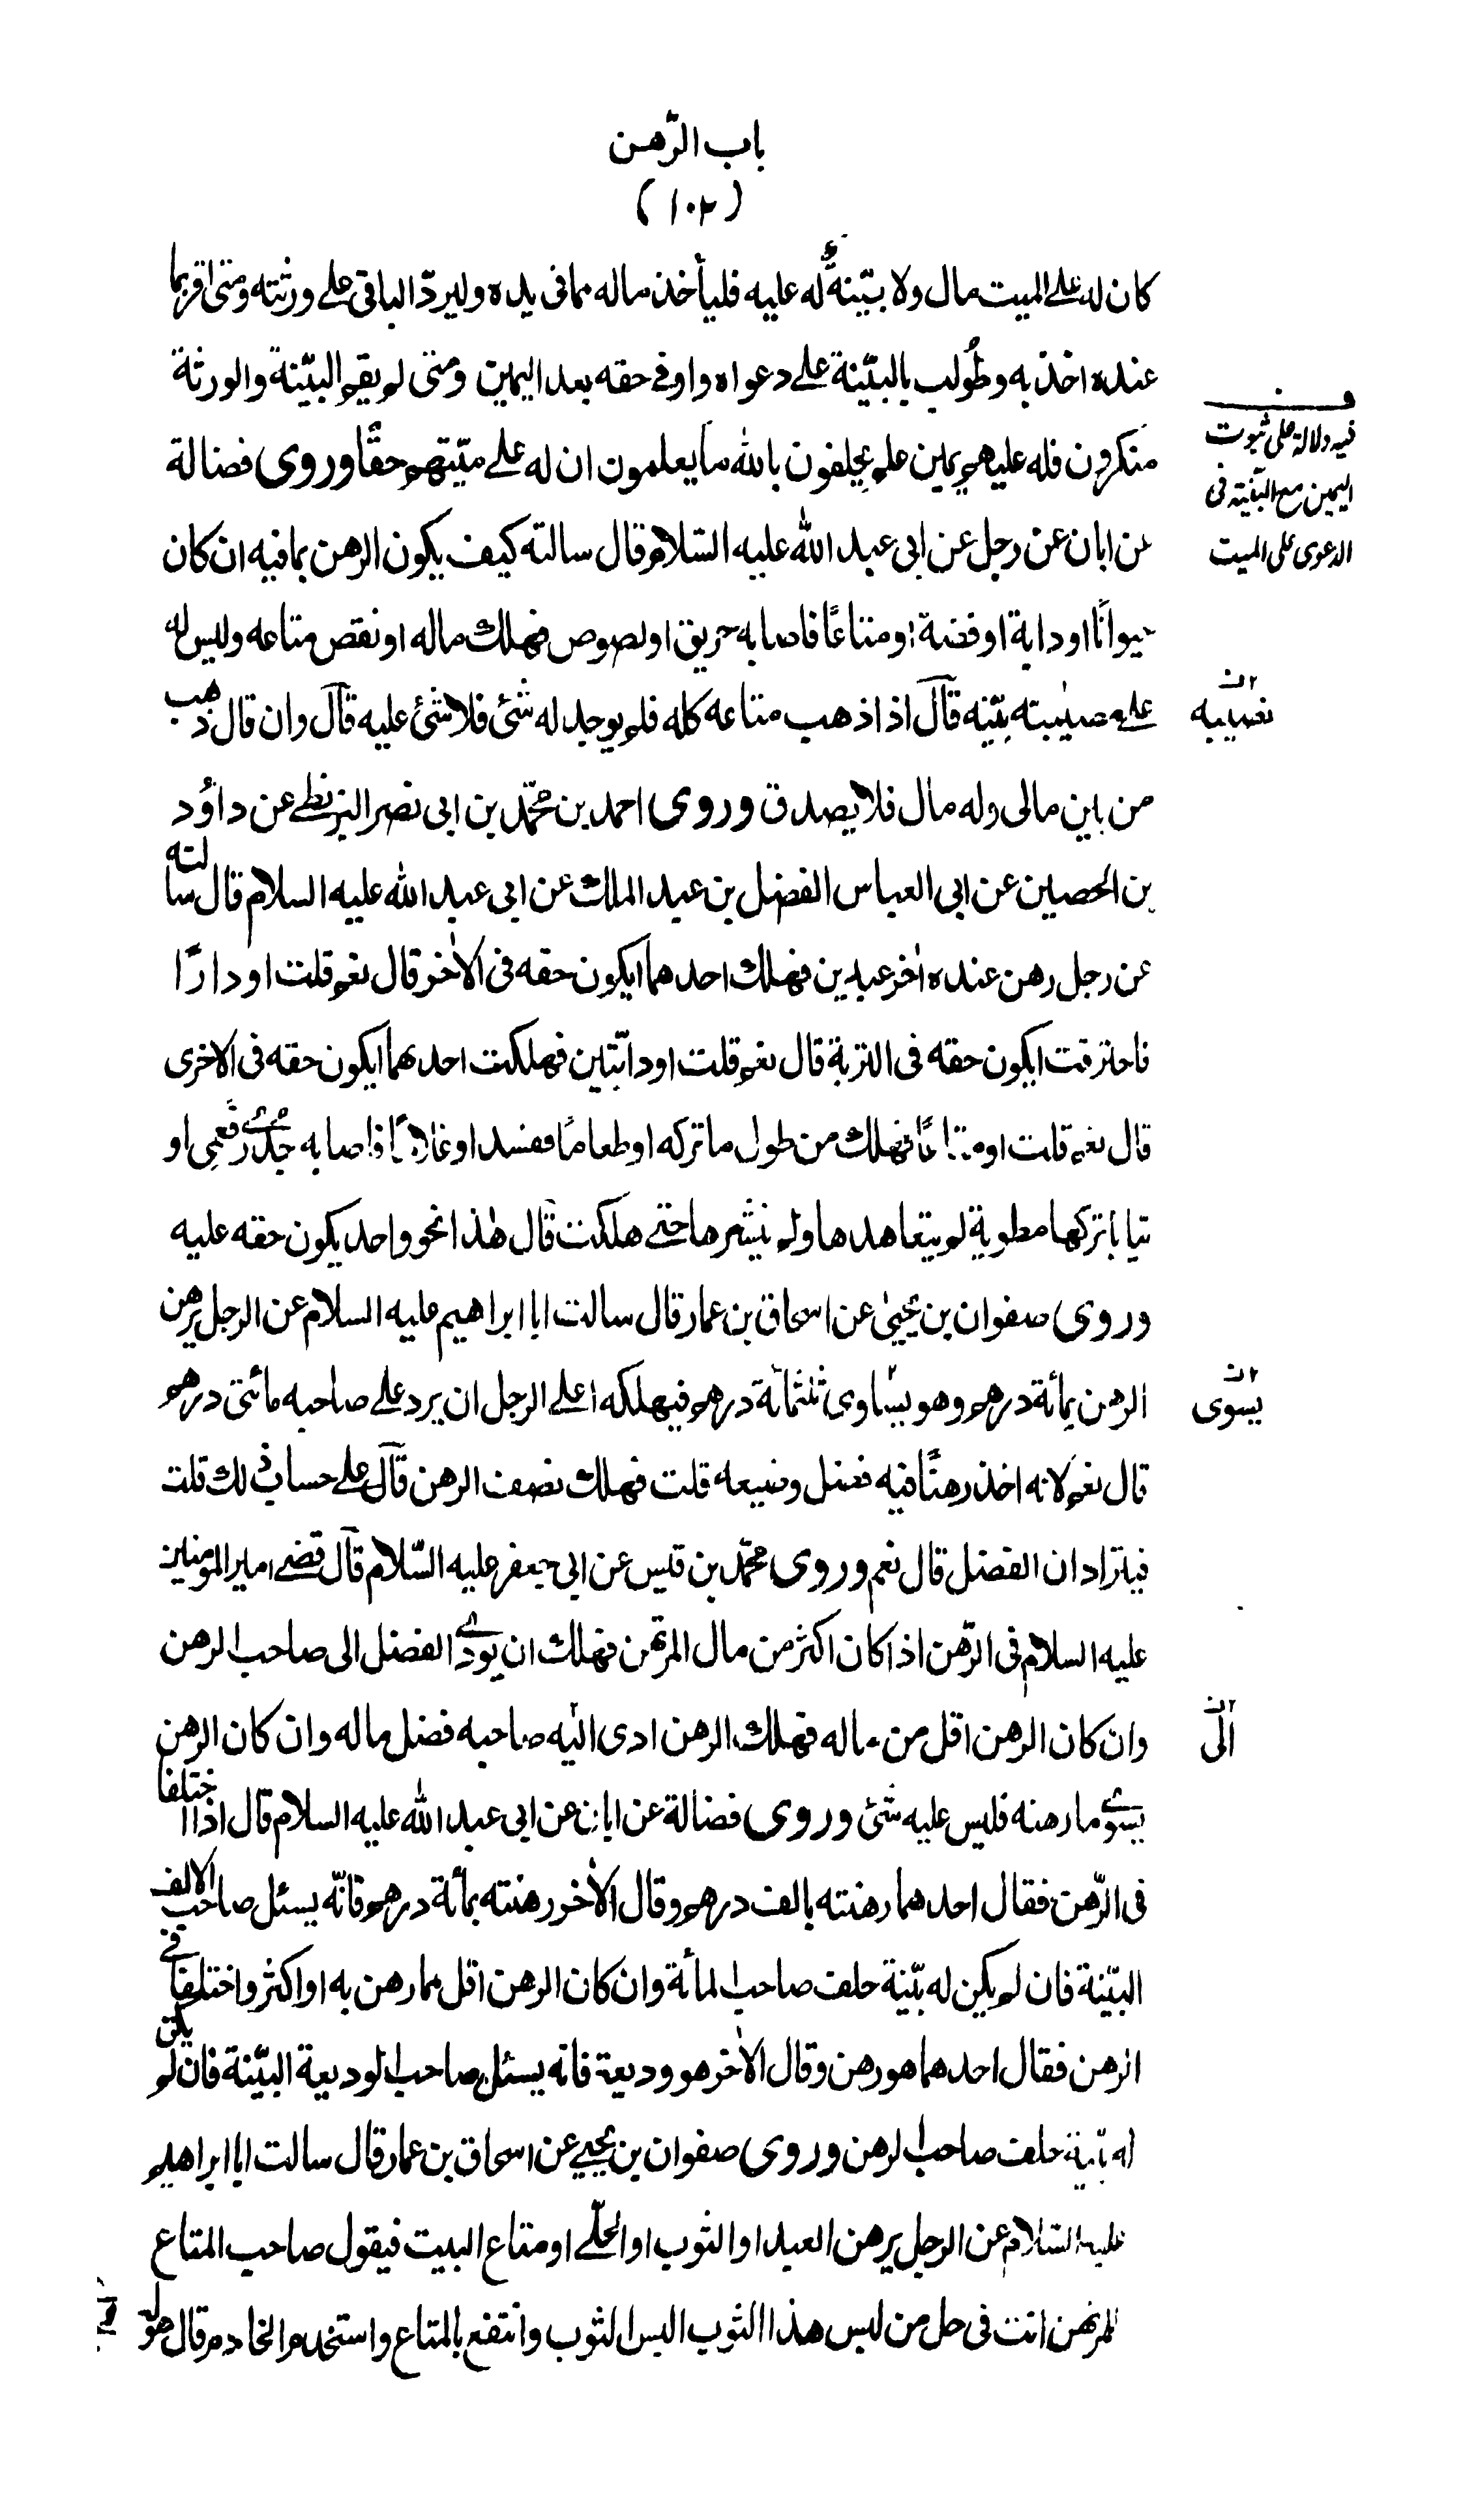 باب الرّهن
(١٠٢)
كان له على الميت مال ولا بيّنة له عليه فليأخذ ماله مما فى يده وليردّ الباقى على ورثته ومتى اقر بما
عنده اخذ به وطُولب بالبيّنة على دعواه واوفى حقه بعد اليمين ومتى لم يقم البيّنة والورثة
منكرون فله عليهم يمين علم يحلفون بالله ما يعلمون ان له على ميّتهم حقًا وروى فضالة
عن ابان عن رجل عن ابى عبد الله عليه السّلام قال سالته كيف يكون الرهن بما فيه ان كان
حيوانًا او دابة او فضة او متاعًا فاصابه حريق او لصوص فهلك ماله او نقص متاعه وليس له
على مصيبته بيّنه قال اذا ذهب متاعه كله فلم يوجد له شئ فلا شئ عليه قال وان قال ذهب
من بين مالى وله مال فلا يصدق وروى احمد بن محمّد بن ابى نصر البزنطى عن داؤد
بن الحصين عن ابى العباس الفضل بن عبد الملك عن ابى عبد الله عليه السلام قال سالته
عن رجل رهن عنده اٰخر عبدين فهلك احدهما ايكون حقه فى الاٰخر قال نعم قلت او دارًا
فاحترقت ايكون حقه فى التربة قال نعم قلت او دابّتين فهلكت احدهما ايكون حقه فى الاخرى
قال نعم قلت او متاعًا فهلك من طول ما تركه او طعامًا ففسد او غلامًا فاصابه جُدَرى فعمى او
ثيابًا تركها مطوية لم يتعاهدها ولم ينشرها حتى هلكت قال هٰذا نحو واحد يكون حقه عليه
وروى صفوان بن يحيىٰ عن اسحاق بن عمار قال سالت ابا ابراهيم عليه السلام عن الرجل يرهن
الرهن بمأة درهم وهو يسّاوى ثلثمائة درهم فيهلكه اعلى الرجل ان يرد على صاحبه مائتى درهم
قال نعم لانه اخذ رهنًا فيه فضل وضيعه قلت فهلك نصف الرهن قال على حساب ذلك قلت
فيترادان الفضل قال نعم وروى محمّد بن قيس عن ابى جعفر عليه السّلام قال قضى امير المومنين
عليه السلام فى الرّهن اذا كان اكثر من مال المرتهن فهلك ان يودّى الفضل الى صاحب الرهن
وان كان الرهن اقل من ماله فهلك الرهن ادى اليه صاحبه فضل ماله وان كان الرهن
يسوى ما رهنه فليس عليه شئ وروى فضالة عن ابان عن ابى عبد الله عليه السلام قال اذا اختلفا
فى الرّهن فقال احدهما رهنته بالف درهم وقال الاٰخر رهنته بمأة درهم فانّه يسئل صاحب الالف
البيّنة فان لم يكن له بيّنة حلف صاحب المأة وان كان الرهن اقل مما رهن به او اكثر واختلفا فى
الرهن فقال احدهما هو رهن وقال الاٰخر هو وديعة فانه يسئل صاحب الوديعة البيّنة فان لم يكن
له بيّنة حلف صاحب الرهن وروى صفوان بن يحيى عن اسحاق بن عمار قال سالت ابا ابراهيم
عليه السّلام عن الرجل يرهن العبد او الثوب او الحلّى او متاع البيت فيقول صاحب المتاع
للمرتهن انت فى حل من لبس هذا الثوب البس الثوب وانتفع بالمتاع واستخدم الخادم قال هو له
فيه دلالة على ثبوت
اليمين مع البيّنة فى
الدعوى على الميت
يسوى
الى